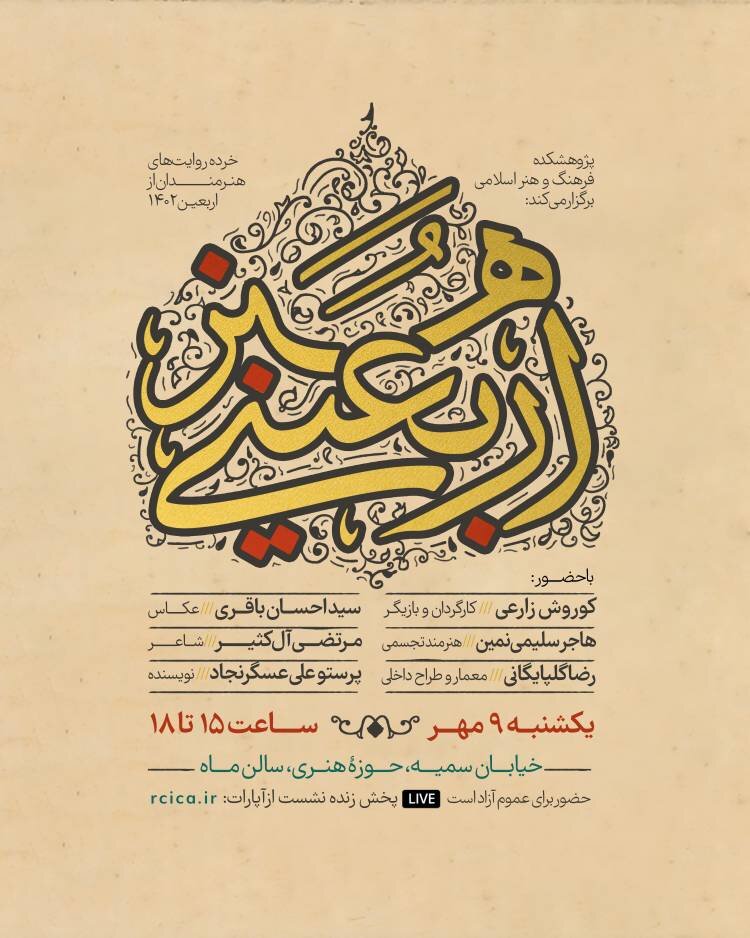 پژوهشکده
فرهنگ و هنر اسلامی
برگزار می‌کند:
خرده روایت‌های
هنرمنــدان از
اربعین ۱۴۰۲
هنر اربعینی
باحضــور:
کوروش زارعی /// کارگردان و بازیگر
سیداحسان باقری /// عکــاس
هاجر سلیمی نمین /// هنرمند تجسمی
مرتضی آل کثیــر /// شاعــر
رضا گلپایگانی /// معمار و طراح داخلی
پرستو علی عسگرنجاد /// نویسنده
یکشنبــه ۹ مهــر
ســاعت ۱۵ تا ۱۸
خیابــان سمیــه، حــوزهٔ هنــری، سالن مــاه
حضور برای عموم آزاد است LIVE پخش زنده نشست از آپارات: rcica.ir